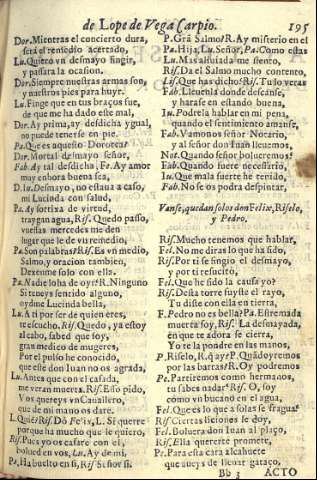 de Lope de Vega Carpio. 195
Dor. Mientras el concierto dura,
será el remedio acertado,
Lu. Quiero vn desmayo fingir,
y passara la ocasion.
Dor. Siempre nuestras armas son,
y nuestros pies para huyr.
Lu. Finge que en tus braços fue,
de que me ha dado este mal,
Dor. Ay prima, ay desdicha ygual,
no puede tenerse en pie.
Pa. Que es aquesto Dorotea?
Dor. Mortal desmayo señor,
Fab. Ay tal desdicha, Fe. Ay amor
muy en hora buena sea,
D. Iu. Desmayo, no estaua a caso,
mi Lucinda con salud,
Pa. Ay sortixa de virtud,
traygan agua, Ris. Quedo passo,
vuestas mercedes me den
lugar que le de vn remedio,
Pa. Son palabras? Ris. Ea en medio,
Salmo, y oracion tambien,
Dexenme solo con ella.
Pa. Nadie lo ha de oyr? R. Ninguno
Si teneys sentido alguno,
oydme Lucinda bella,
Lu. A ti por ser de quien eres,
te escucho. Ris. Quedo, ya estoy
al cabo, sabed que soy,
gran medico de mugeres,
Por el pulso he conocido,
que este don Iuan no os agrada,
Lu. Antes que con el casada,
me veran muerta. Ris. Esso pido,
Vos quereys vn Cauallero,
que de mi mano os dare.
L. Quié? Ris. Dō Felix, L. Si quere
porque ha mucho que le quiero,
Ris. Pues yo os casare con el,
bolued en vos, Lu. Ay de mi,
Pa. Ha buelto en si, Ris. Señor si.
P. Grā Salmo? R. Ay misterio en el
Pa. Hija, Lu. Señor, Pa. Como estas
Lu. Mas aliuiada me siento,
Ris. Da el Salmo mucho contento,
Lis. Que has dicho? Ris. Tu lo veras
Fab. Lleuenla donde descanse,
y harase en estando buena,
Iu. Podrela hablar en mi pena,
quando el sentimiento amanse,
Fab. Vamonos señor Notario,
y al señor don Iuan lleuemos,
Not. Quando señor bolueremos?
Fab. Quando fuere necessario,
Iu. Que mala suerte he tenido,
Fab. No se os podra despintar,
Vanse, quedan solos don Felix, Riselo,
y Pedro.
Ris. Mucho tenemos que hablar,
Fel. No me diras lo que ha sido,
Ris. Por ti se fingio el desmayo,
y por ti resucitò,
Fel. Que he sido la causa yo?
Ris. Desta torre fuyste el rayo,
Tu diste con ella en tierra,
F. Pedro no es bella? Pa. Estremada
muerta soy, Ris. La desmayada,
en que te adora se cierra,
Yo te la pondre en las manos,
P. Riselo, R. q ay? P. Quādo yremos
por las barras? R. Oy podremos
Pe. Partiremos como hermanos,
tu sabes nadar? Ris. O, soy
como vn bucano en el agua,
Fel. Que es lo que a solas se fragua?
Ris. Ciertas liciones le doy,
Fel. Boluera don Iuan al plaço,
Ris. Ella quererte promete,
Pe. Para esta cara alcahuete
que aueys de lleuar gataço,
Bb 3 ACTO